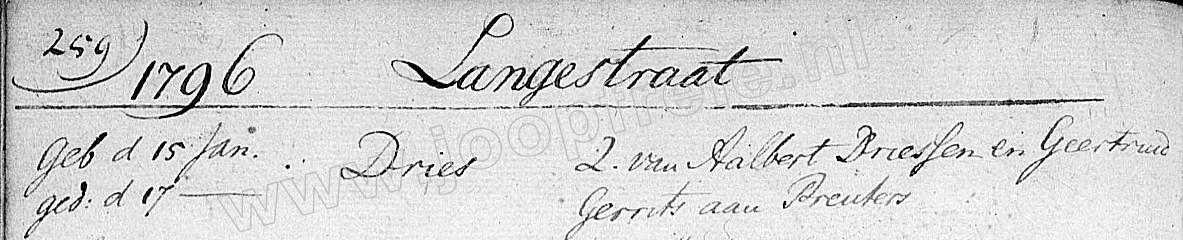 259) 1796 Langestraat
Geb d 15 Jan. . . Dries Z. van Aalbert Driessen en Geertruid
ged: d 17 — Gerrits aan Breuters
www.joopnrele.nl